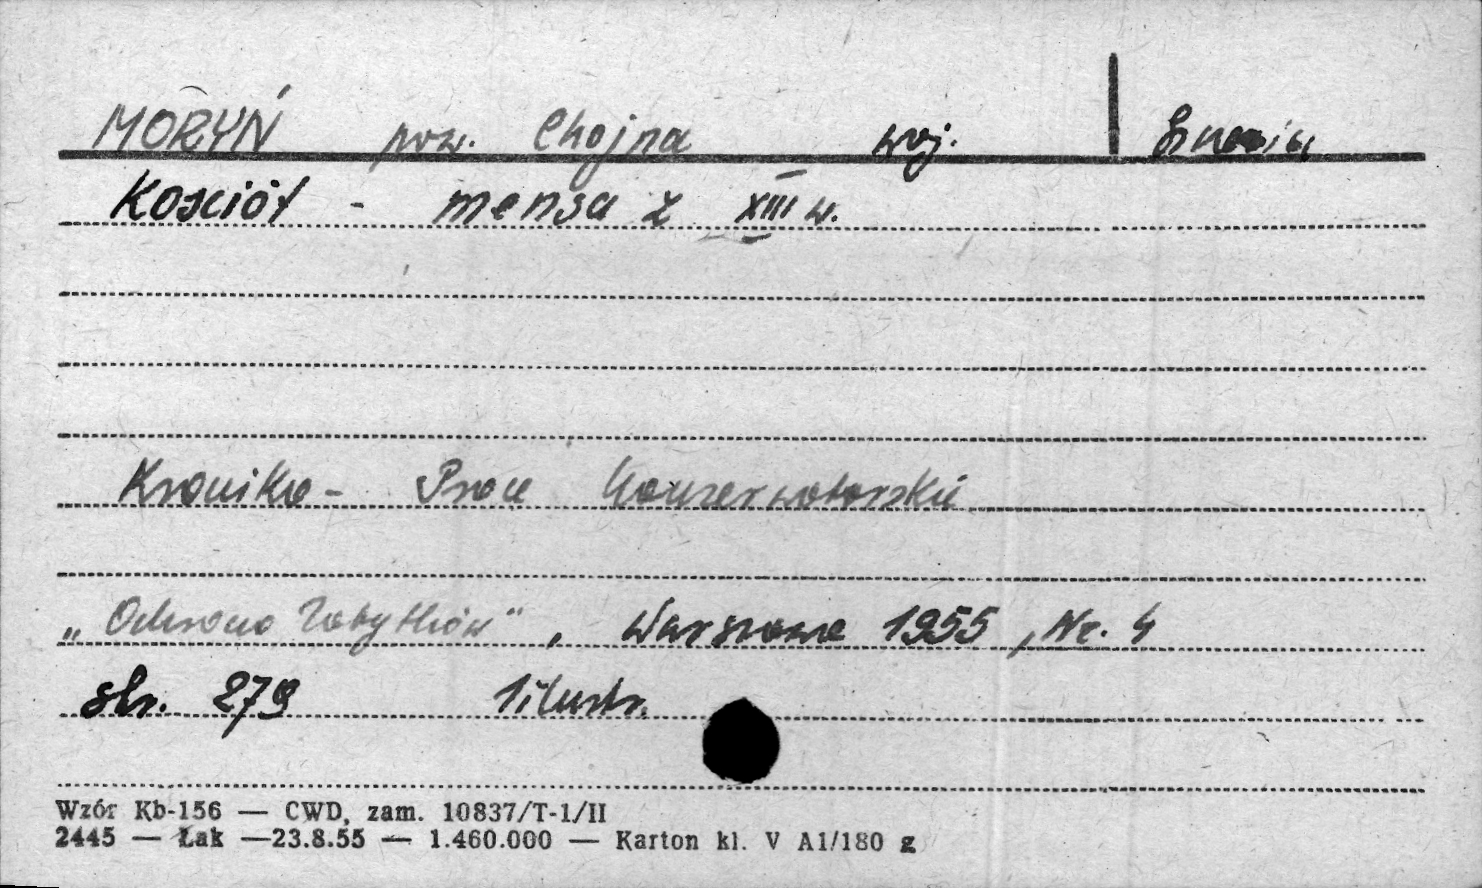 MORYŃ pow. Chojna woj. Szczecin
Kościół - mensa z XIII w.
Kronika - Prace Konserwatorskie
„Ochrona Zabytków", Warszawa 1955, Nr. 4
str. 279 1 ilustr.
Wzór Kb-156 — CWD, zam. 10837/T-1/II
2445 — Łak —23.8.55 — 1.460.000 — Karton kl. V A1/180 g